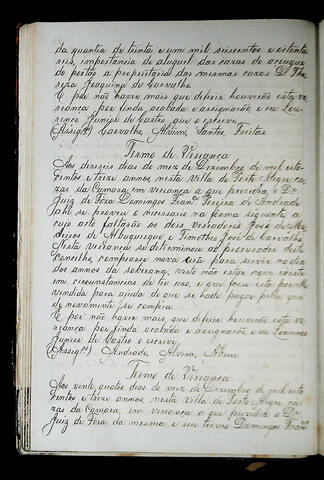 da quantia de trinta e um mil seiscentos e oitenta
reis, importancia do aluguel das cazas do açougue
do portão a proprietaria das mesmas cazas D. The
reza Joaquina de Carvalho
E por não haver mais que deferir houverão esta ve
riança por finda, acabada e assignação, e eu Lou
renço Junior de Castro que o escrevi
(Assigdos) Carvalho, Alvim, Santos, Freitas
Termo de Veriança
Aos dezeseis dias do mez de Dezembro de mil oito
centos e treze annos, nesta Villa de Porto Alegre ca
zas da Camara, em veriança a que prezidio o Dr
Juiz de Fora Domingos Franco Teixeira de Andrade
se proveu o necessario na forma seguinte, a
cujo acto faltarão os dois vereadores José de Me
deiros de Albuquerque e Timotheo José de Carvalho
Nesta veriança se determinou ao procurador deste
Concelho, comprasse nova para servir no dia
dos annos da soberana, visto não estar a que existe
em circumstancias de ter uso, e que fosse esta
vendida para ajuda do que se hade pagar pela que
novamente se compra
E por não haver mais que deferir houverão esta ve
riança por finda acabada e assignação eu Lourenço
Junior de Castro o escrevi
(Assigdos) Andrade, Alvim, Abreu
Termo de Veriança
Aos vinte quatro dias do mez de Dezembro de mil oito
centos e treze annos, nesta Villa de Porto Alegre, ca
zas da Camara, em veriança a que prezidio o Dr
Juiz de Fora da mesma e seu termo Domingos Franco